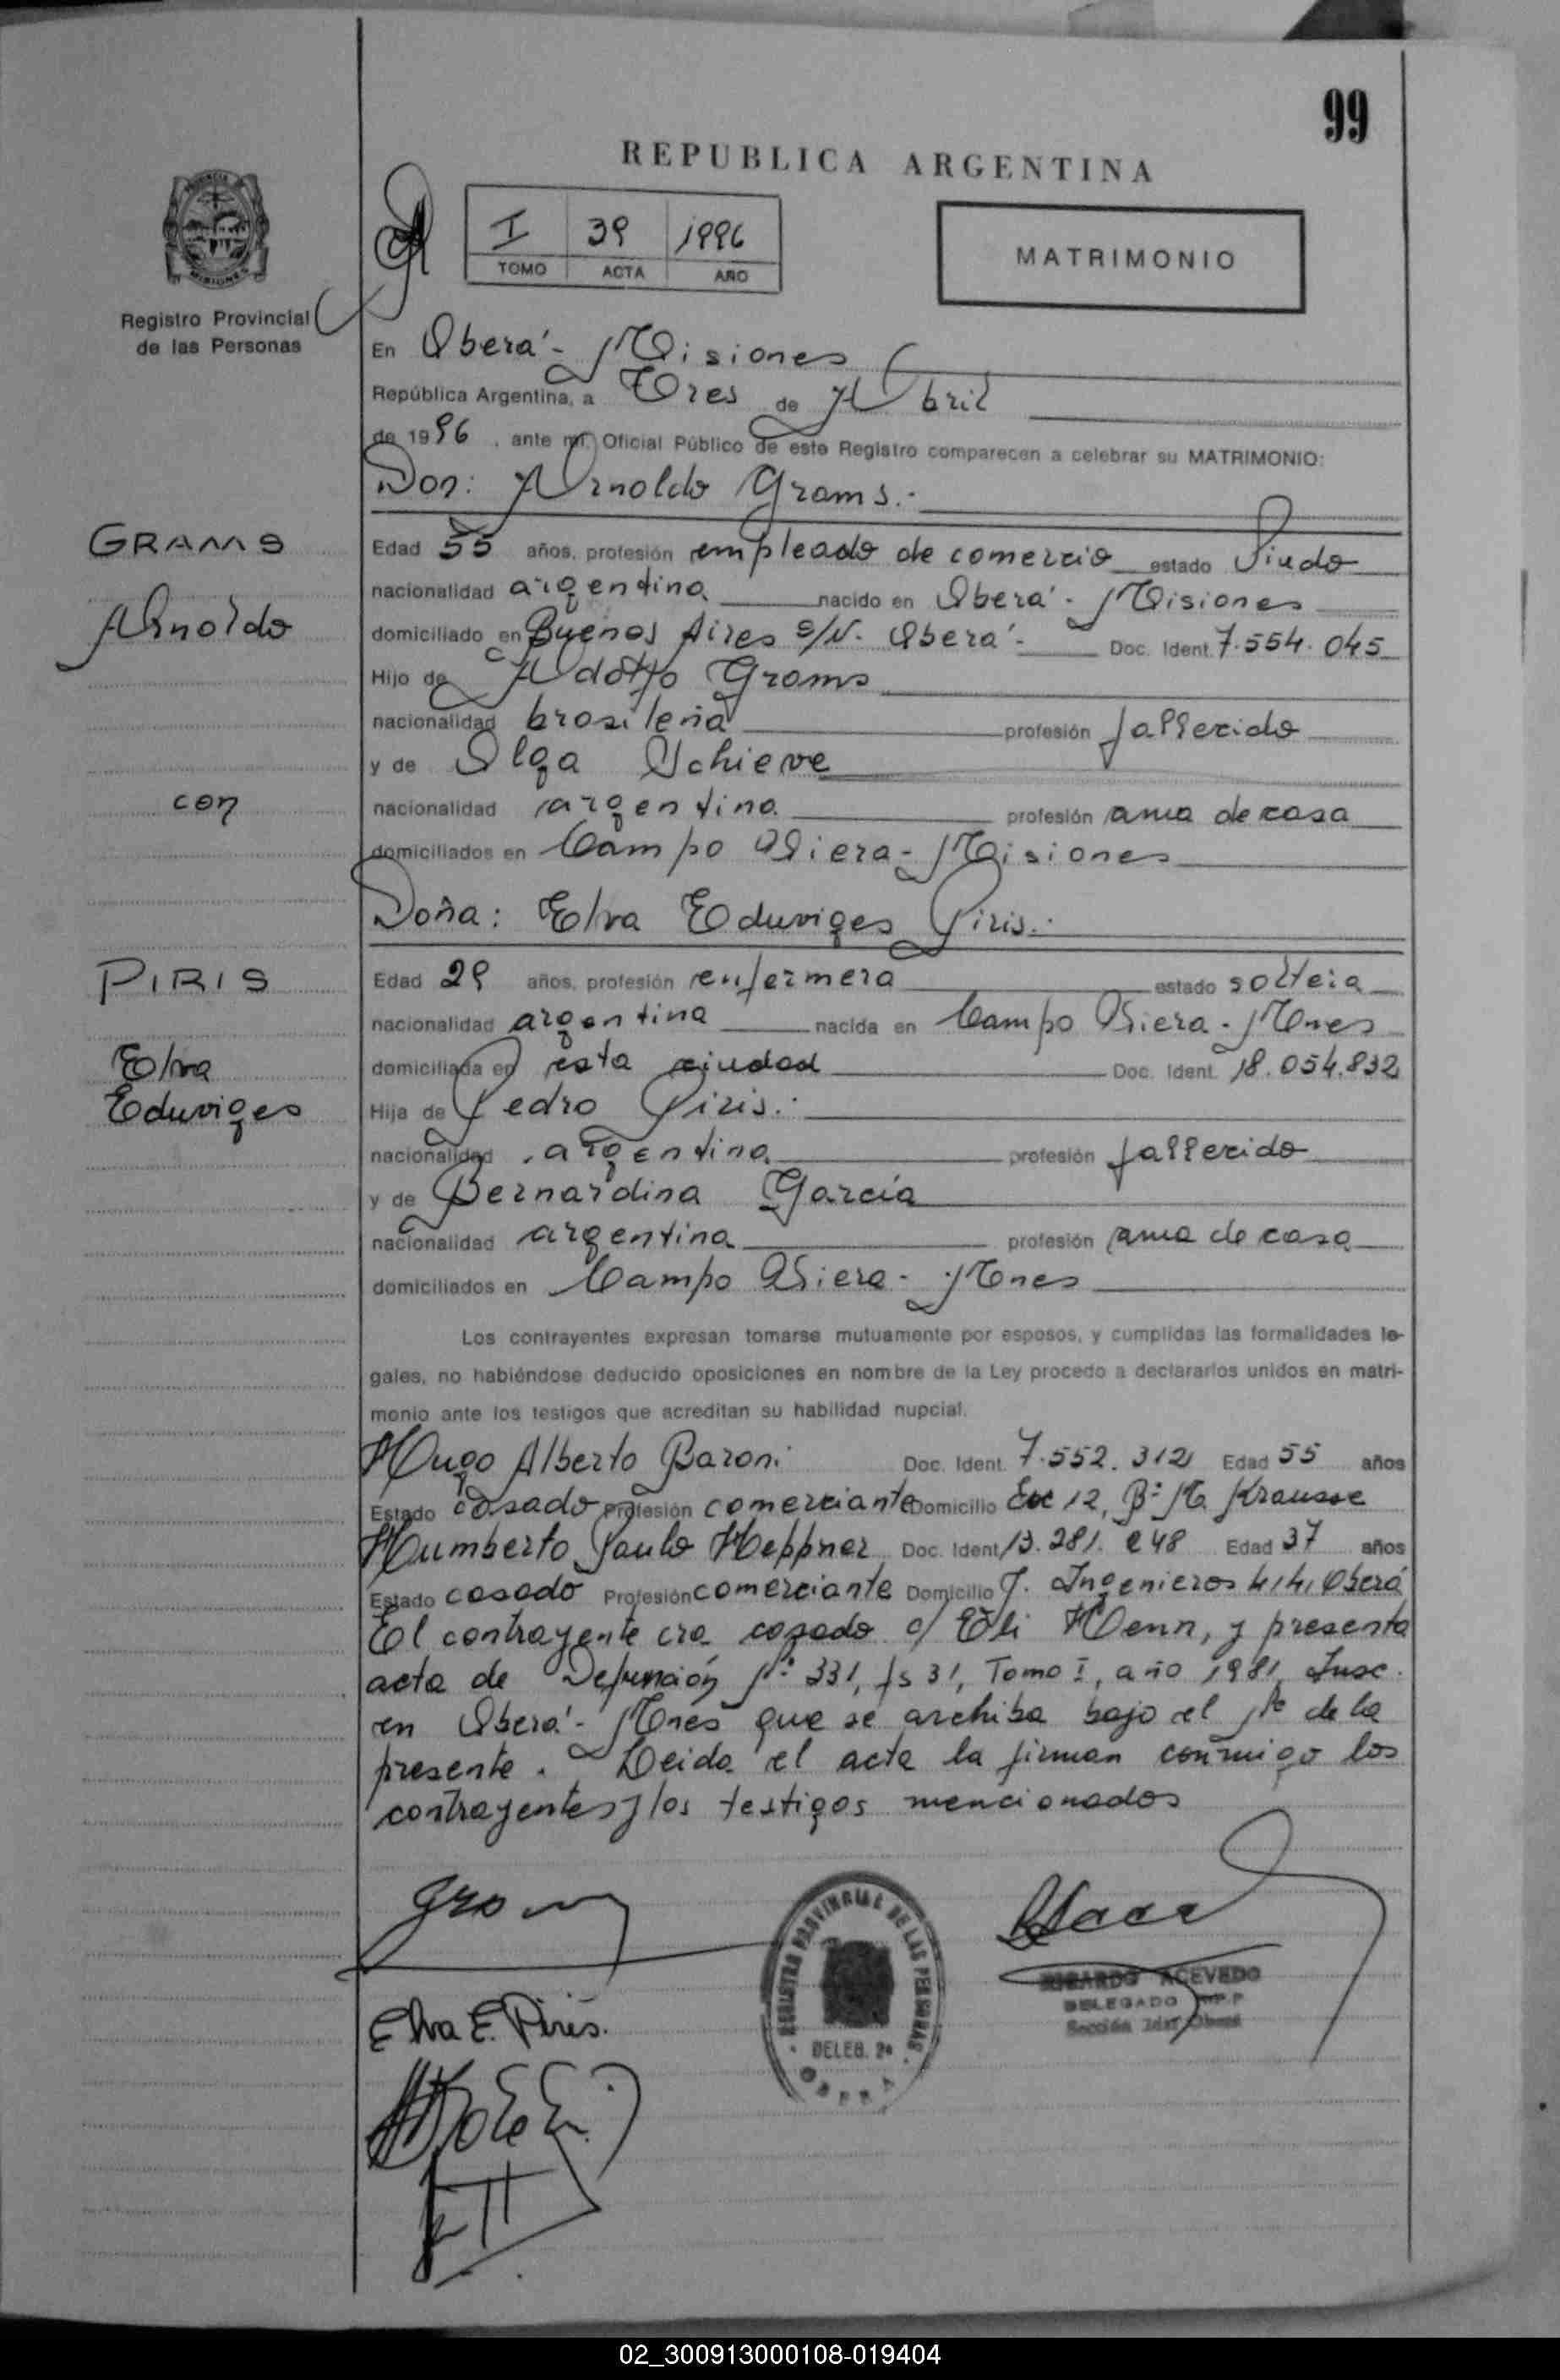 99
REPUBLICA ARGENTINA
I 39 1996
TOMO ACTA AÑO
MATRIMONIO
PROVINCIA
MISIONES
Registro Provincial
de las Personas
En Oberá - Misiones
República Argentina, a Tres de Abril
de 1996, ante mí, Oficial Público de este Registro comparecen a celebrar su MATRIMONIO:
Don: Arnoldo Grams.-
GRAMS
Arnoldo
con
PIRIS
Elva
Eduviges
Edad 55 años, profesión empleado de comercio estado Viudo
nacionalidad argentina nacido en Oberá - Misiones
domiciliado en Buenos Aires s/N. Oberá - Doc. Ident. 7.554.045
Hijo de Adolfo Grams
nacionalidad brasileña profesión fallecido
y de Olga Schieve
nacionalidad argentina profesión ama de casa
domiciliados en Campo Viera - Misiones
Doña: Elva Eduviges Piris.-
Edad 29 años, profesión enfermera estado soltera
nacionalidad argentina nacida en Campo Viera - Mnes
domiciliada en esta ciudad Doc. Ident. 18.054.832
Hija de Pedro Piris.-
nacionalidad argentina profesión fallecido
y de Bernardina García
nacionalidad argentina profesión ama de casa
domiciliados en Campo Viera - Mnes
Los contrayentes expresan tomarse mutuamente por esposos, y cumplidas las formalidades le-
gales, no habiéndose deducido oposiciones en nombre de la Ley procedo a declararlos unidos en matri-
monio ante los testigos que acreditan su habilidad nupcial.
Hugo Alberto Baroni Doc. Ident. 7.552.312 Edad 55 años
Estado casado Profesión comerciante Domicilio 12, Bº M. Krausse
Humberto Paulo Heppner Doc. Ident. 13.281.248 Edad 37 años
Estado casado Profesión comerciante Domicilio J. Ingenieros 414, Oberá
El contrayente era casado c/ Eli Henn, y presenta
acta de Defunción Nº 331, fs 31, Tomo I, año 1981, Insc.
en Oberá - Mnes que se archiba bajo el Nº de la
presente. Leida el acta la firman conmigo los
contrayentes y los testigos mencionados
Elva E. Piris.
REGISTRO PROVINCIAL DE LAS PERSONAS
DELEG. 2ª
OBERA
RICARDO ACEVEDO
DELEGADO R.P.P
02_300913000108-019404